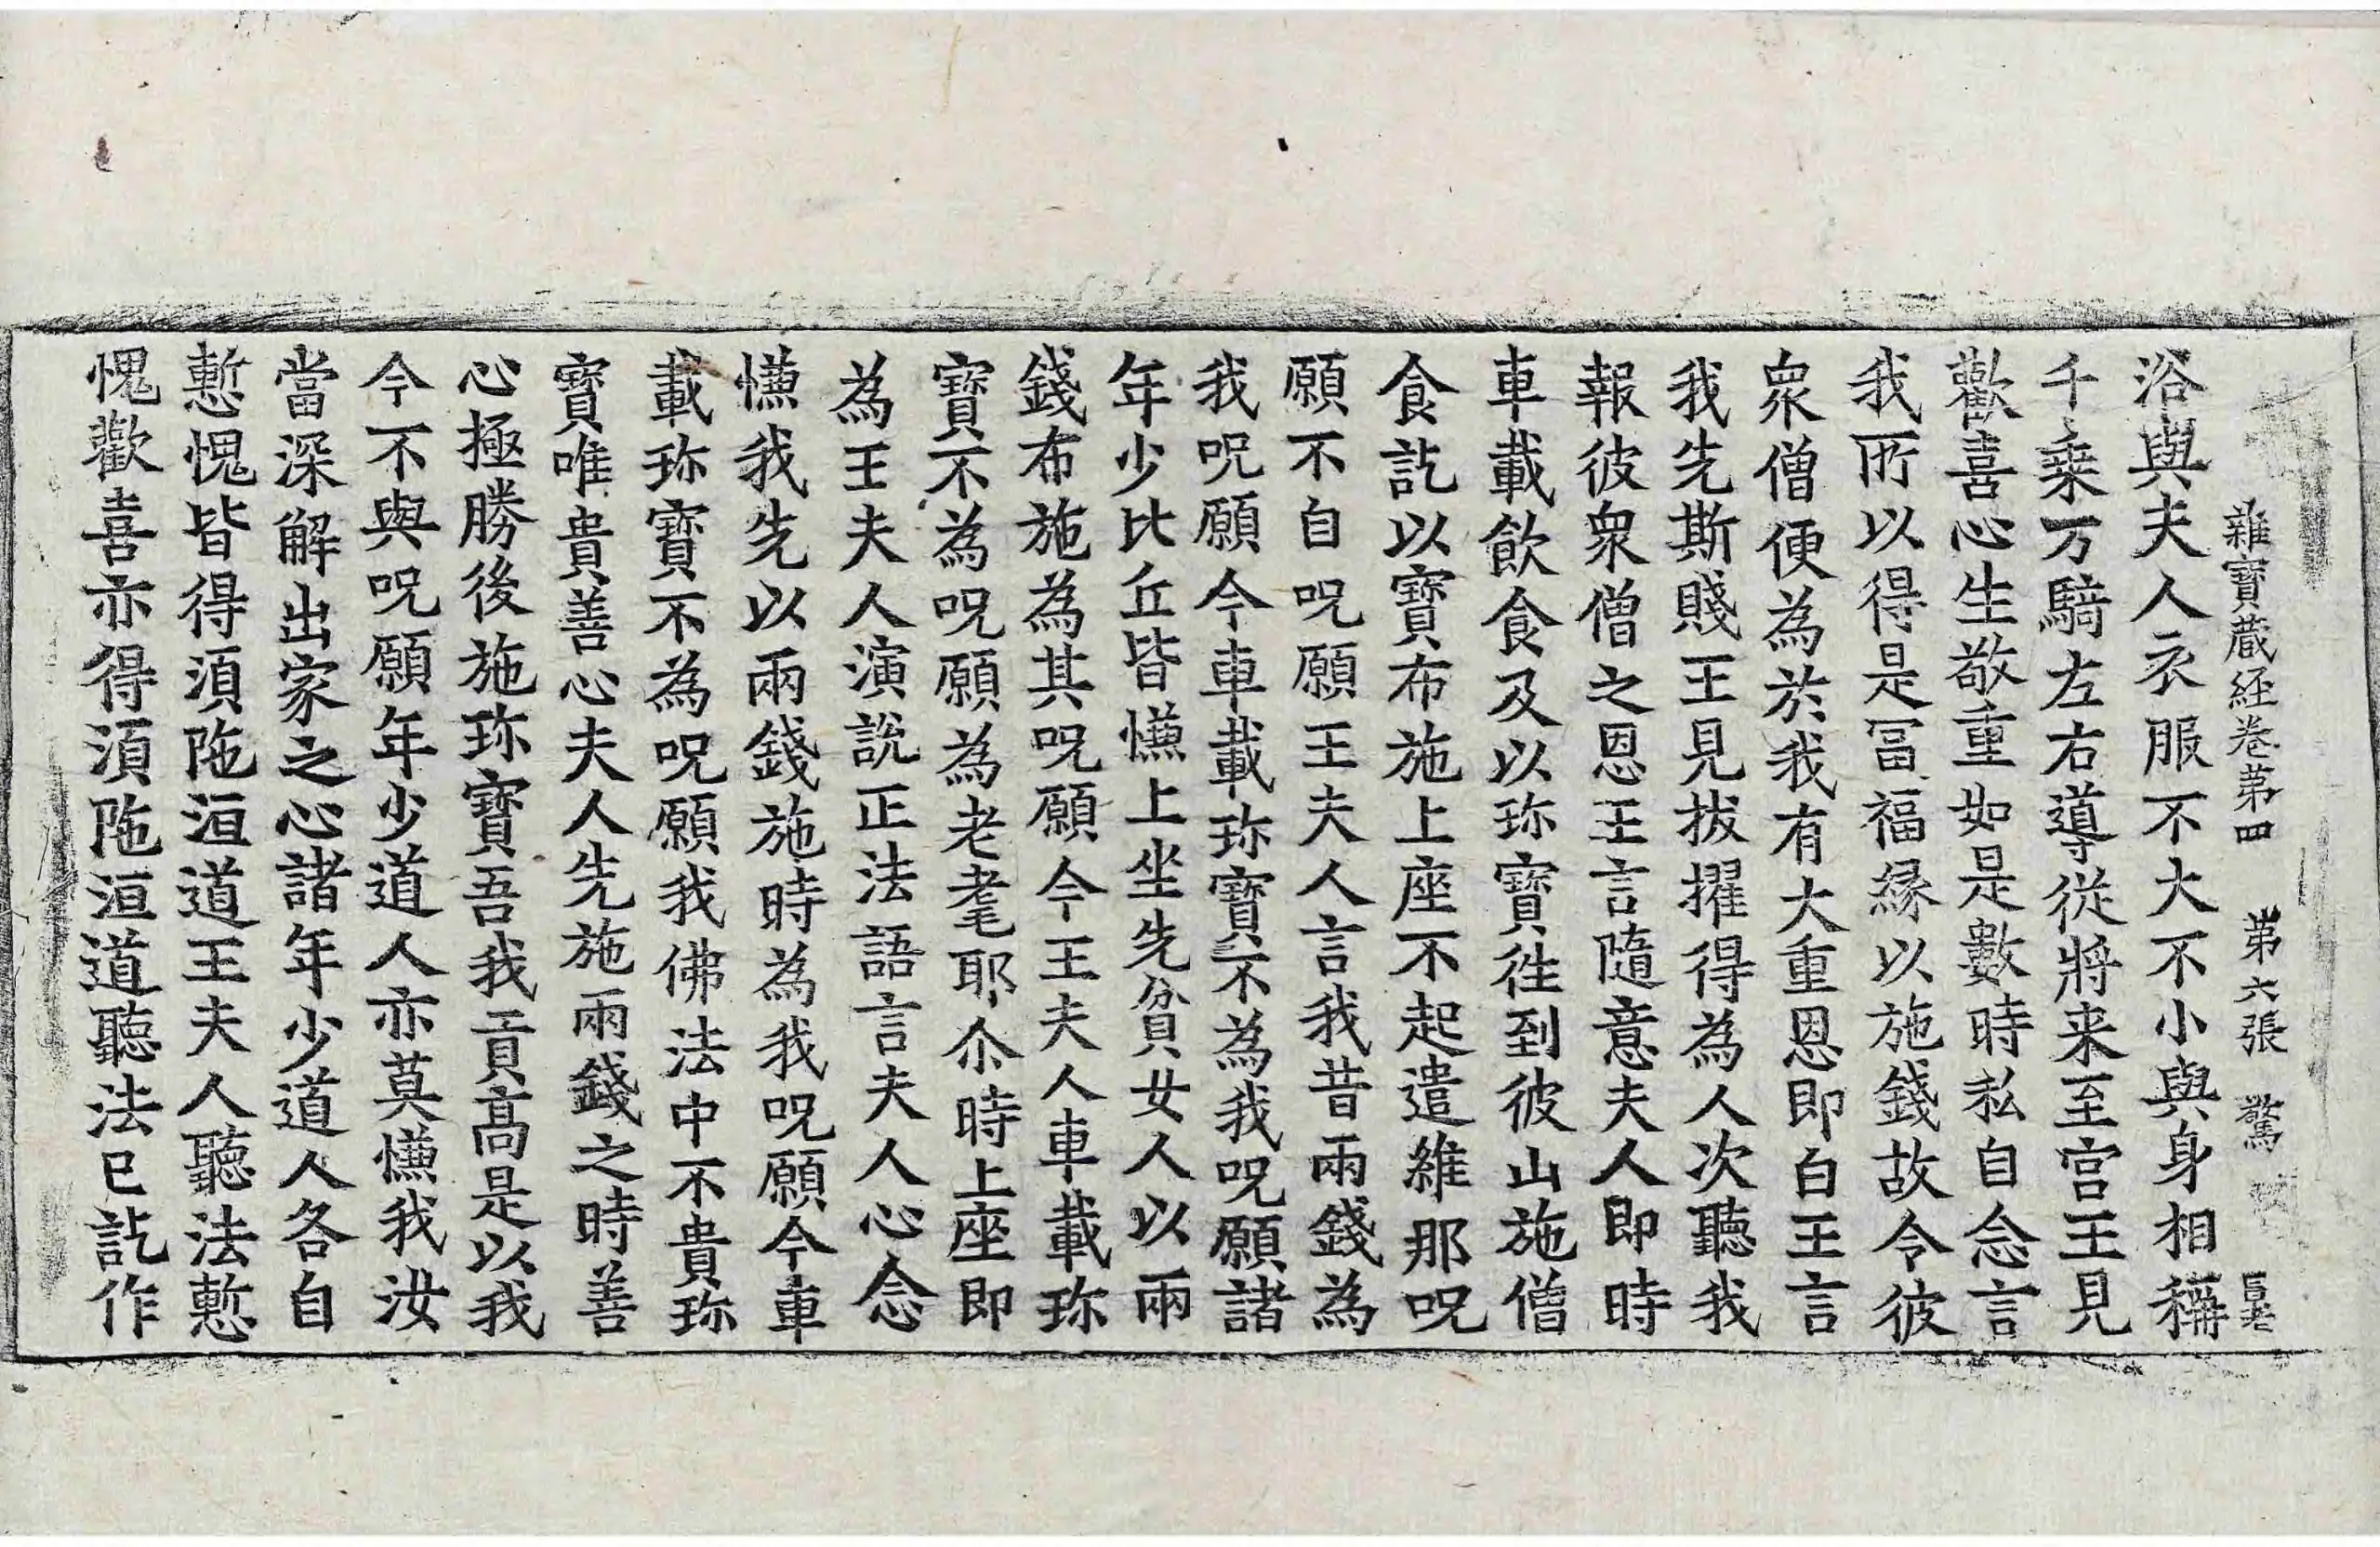 雜寶蔵經卷第四 第六張 驚
浴與夫人衣服不大不小與身相稱
千乗万騎左右導從將来至宫王見
歡喜心生敬重如是數時私自念言
我所以得是冨福縁以施錢故今彼
衆僧便為於我有大重恩即白王言
我先斯賤王見拔擢得為人次聽我
報彼衆僧之恩王言隨意夫人即時
車載飲食及以珎寶徃到彼山施僧
食訖以寶布施上座不起遣維那呪
願不自呪願王夫人言我昔兩錢為
我呪願今車載珎寶不為我呪願諸
年少比丘皆慊上坐先貧女人以兩
錢布施為其呪願今王夫人車載珎
寶不為呪願為老耄耶尒時上座即
為王夫人演說正法語言夫人心念
慊我先以兩錢施時為我呪願今車
載珎寶不為呪願我佛法中不貴珎
寶唯貴善心夫人先施兩錢之時善
心極勝後施珎寶吾我貢高是以我
今不與呪願年少道人亦莫慊我汝
當深解出家之心諸年少道人各自
慙愧皆得湏陁洹道王夫人聽法慙
愧歡喜亦得湏陁洹道聽法已訖作